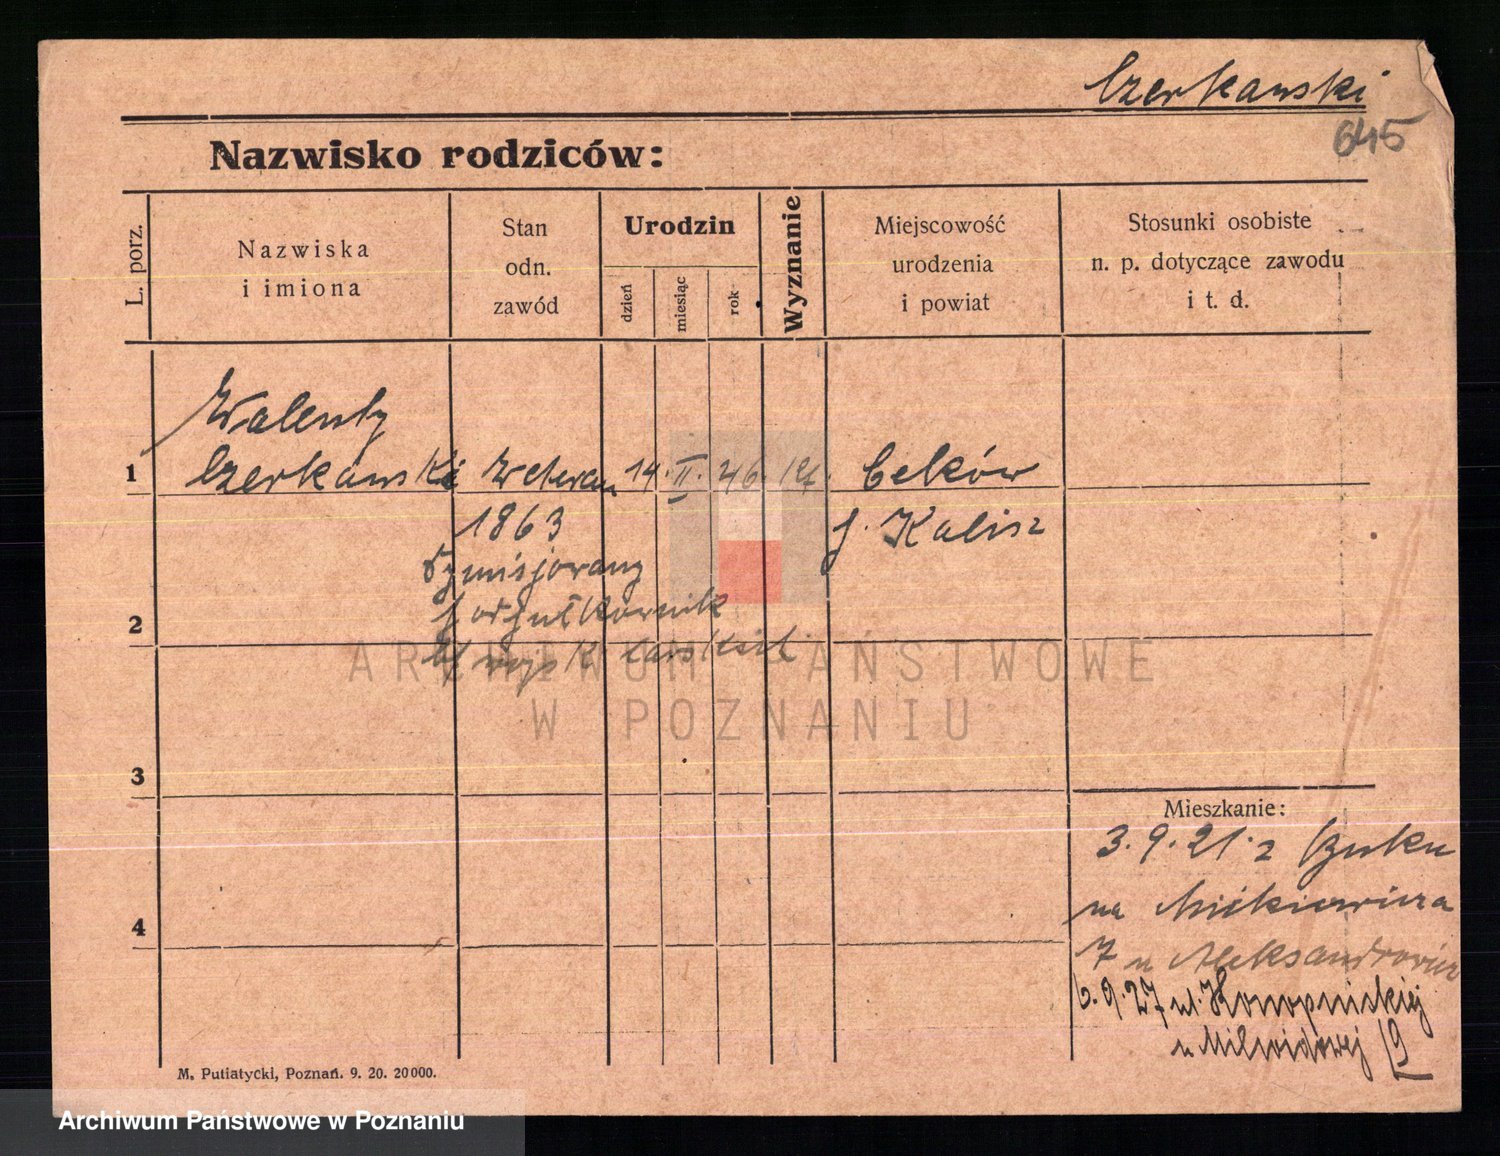 Czerkawski
645
Nazwisko rodziców:
L. porz.
Nazwiska
i imiona
Stan
odn.
zawód
Urodzin
dzień
miesiąc
rok
Wyznanie
Miejscowość
urodzenia
i powiat
Stosunki osobiste
n. p. dotyczące zawodu
i t. d.
Walenty
1 Czerkawski Weteran 14. II. 46. kt. Ceków
1863 p. Kalisz
dymisjowany
2 podpułkownik
wojsk
3
Mieszkanie:
3.9.21. z Buku
na Mickiewicza
4
7 u Aleksandrowicz
6.9.27 ul. Konopnickiej
u Milwidowej 19
M. Putiatycki, Poznań. 9. 20. 20000.
ARCHIWUM PAŃSTWOWE
W POZNANIU
Archiwum Państwowe w Poznaniu